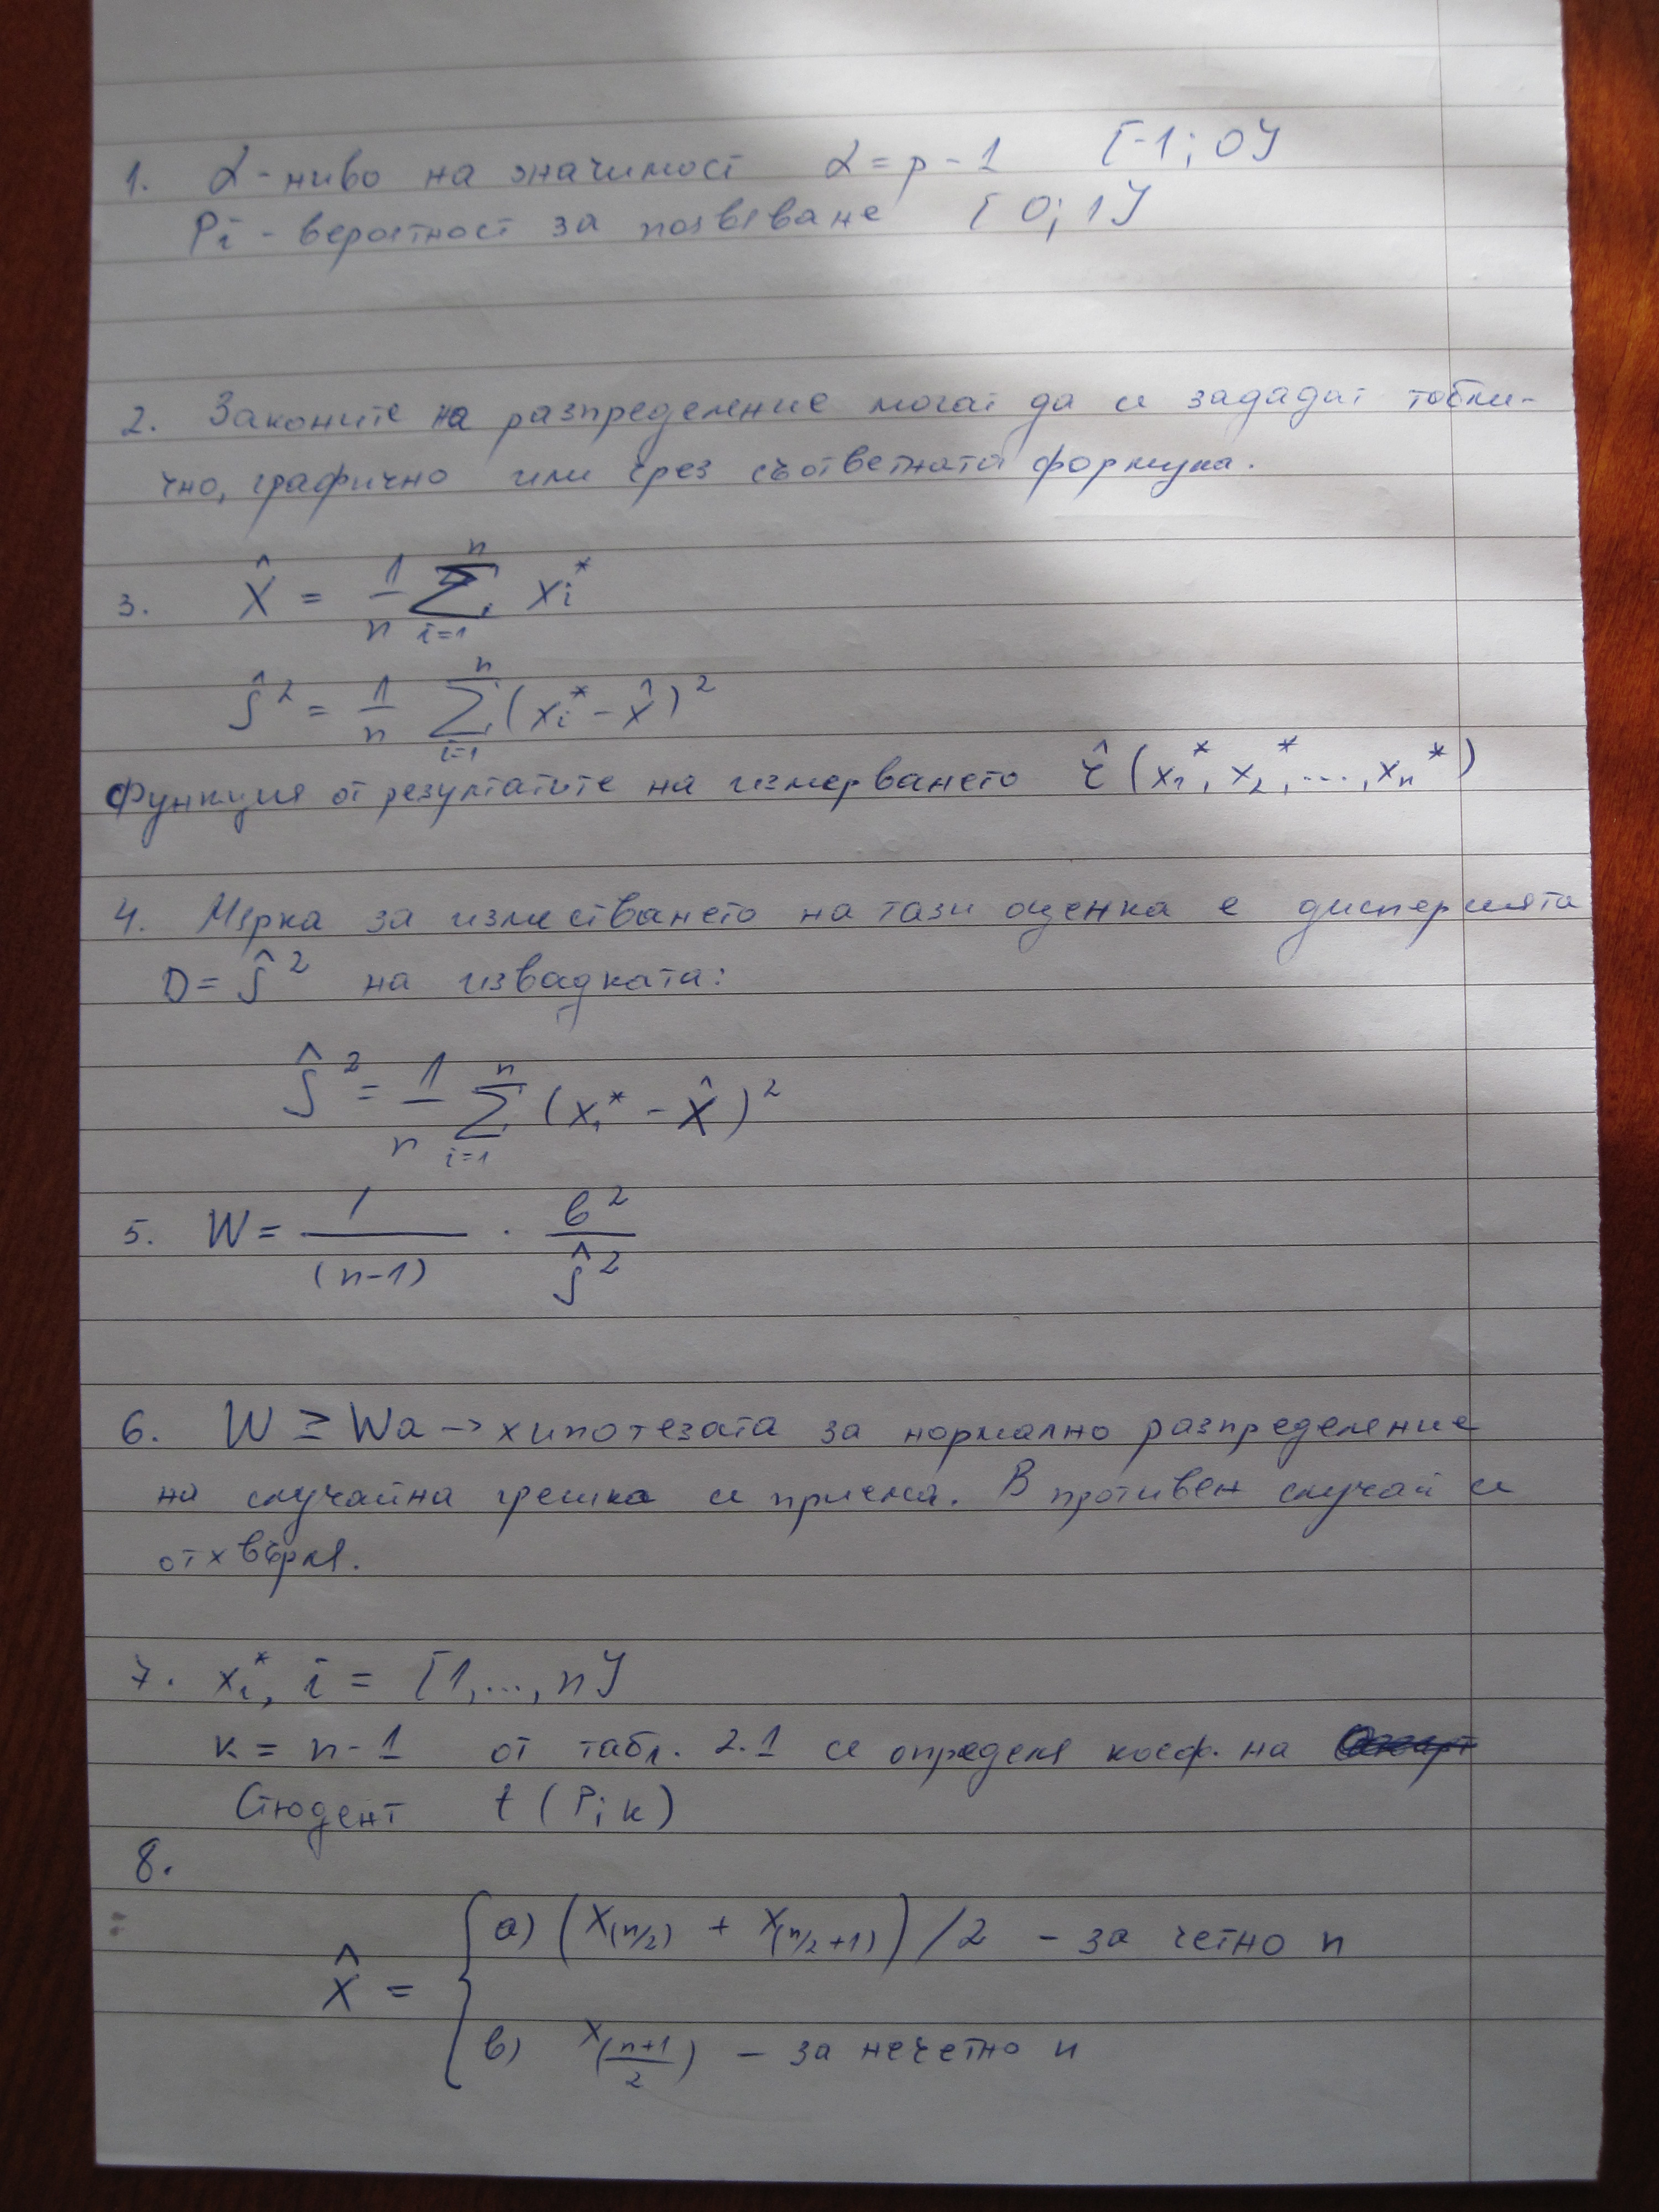 1. α - ниво на значимост α = p - 1 [-1; 0]
Pi - вероятност за появяване [0; 1]
2. Законите на разпределение могат да се зададат табли-
чно, графично или чрез съответната формула.
3. X̂ = 1/n ∑_{i=1}^{n} xi*
Ŝ² = 1/n ∑_{i=1}^{n} (xi* - x̂)²
Функция от резултатите на измерването τ̂ (x1*, x2*, ...., xn*)
4. Мярка за изместването на тази оценка е дисперсията
D = Ŝ² на извадката:
Ŝ² = 1/n ∑_{i=1}^{n} (xi* - X̂)²
5. W = 1/(n-1) · б²/Ŝ²
6. W ≥ Wa → хипотезата за нормално разпределение
на случайна грешка се приема. В противен случай се
отхвърля.
7. xi*, i = [1, ..., n]
k = n - 1 от табл. 2.1 се определя коеф. на
Стюдент t (P; k)
8.
X̂ = { а) (X(n/2) + X(n/2+1)) /2 - за четно n
в) X((n+1)/2) - за нечетно n